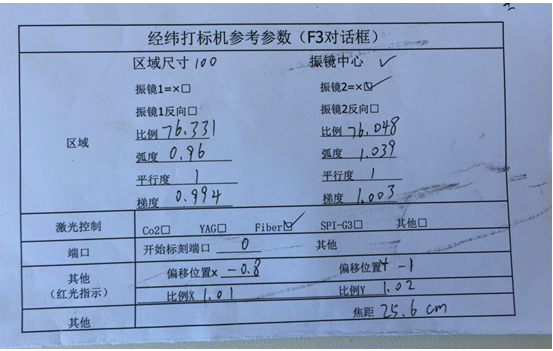 经纬打标机参考参数（F3对话框）
区域尺寸 100 振镜中心 ✓
振镜1=×□ 振镜2=×☑
振镜1反向□ 振镜2反向□
区域
比例 76.331 比例 76.048
弧度 0.96 弧度 1.039
平行度 1 平行度 1
梯度 0.994 梯度 1.003
激光控制 Co2□ YAG□ Fiber☑ SPI-G3□ 其他□
端口 开始标刻端口 0 其他
其他（红光指示） 偏移位置x -0.8 偏移位置Y -1
比例X 1.01 比例Y 1.02
其他 焦距 25.6 cm